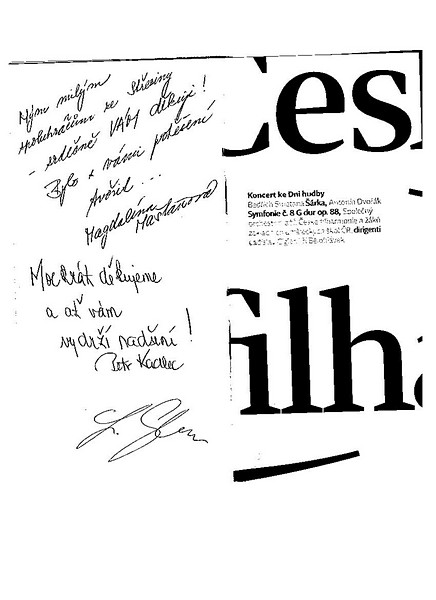 Mým milým
spoluhráčům ze Střeziny
- srdečně VÁM děkuji!
Bylo s vámi potěšení
tvořit...
Magdalena
Mašlaňová
Mockrát děkujeme
a ať vám
vydrží nadšení!
Petr Kadlec
Česk
Koncert ke Dni hudby
Bedřich Smetana Šárka, Antonín Dvořák
Symfonie č. 8 G dur op. 88, Společný
orchestr České filharmonie a žáků
základních uměleckých škol ČR, dirigenti
filha